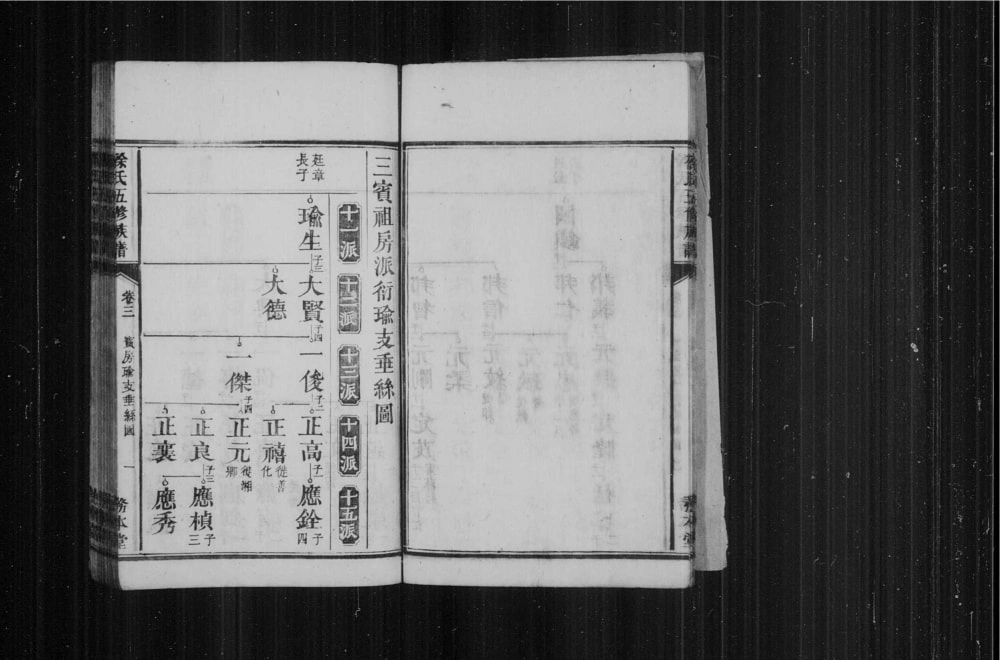 三賓祖房派衍瑜支垂絲圖
十一派
十二派
十三派
十四派
十五派
廷章
長子
瑜生
子三
大賢
子四
一俊
子二
正高
子一
應銓
子四
正禧
從善
化
大德
一傑
子四
正元
復湘
鄉
正良
子三
應楨
子三
正襄
應秀
徐氏五修族譜
卷三
賓房瑜支垂絲圖
一
務本堂